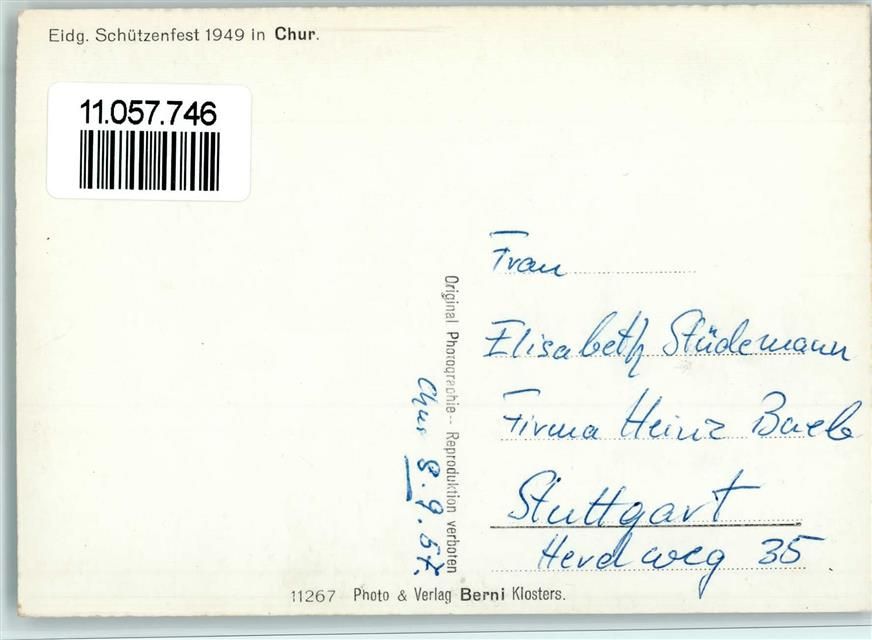 Eidg. Schützenfest 1949 in Chur.
11.057.746
Frau
Elisabeth Stüdemann
Firma Heinz
Stuttgart
Herdweg 35
Original Photographie - Reproduktion verboten
Chur 8.9.57.
11267 Photo & Verlag Berni Klosters.